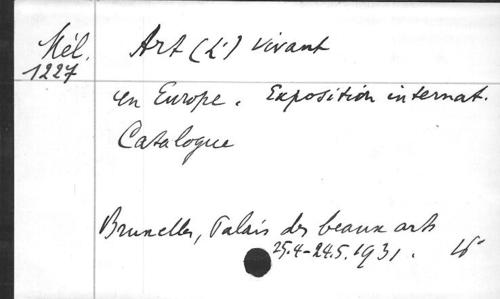 Mél.
1227
Art (L') vivant
en Europe. Exposition internat.
Catalogue
Bruxelles, Palais des beaux arts
25.4-24.5.1931. 16°